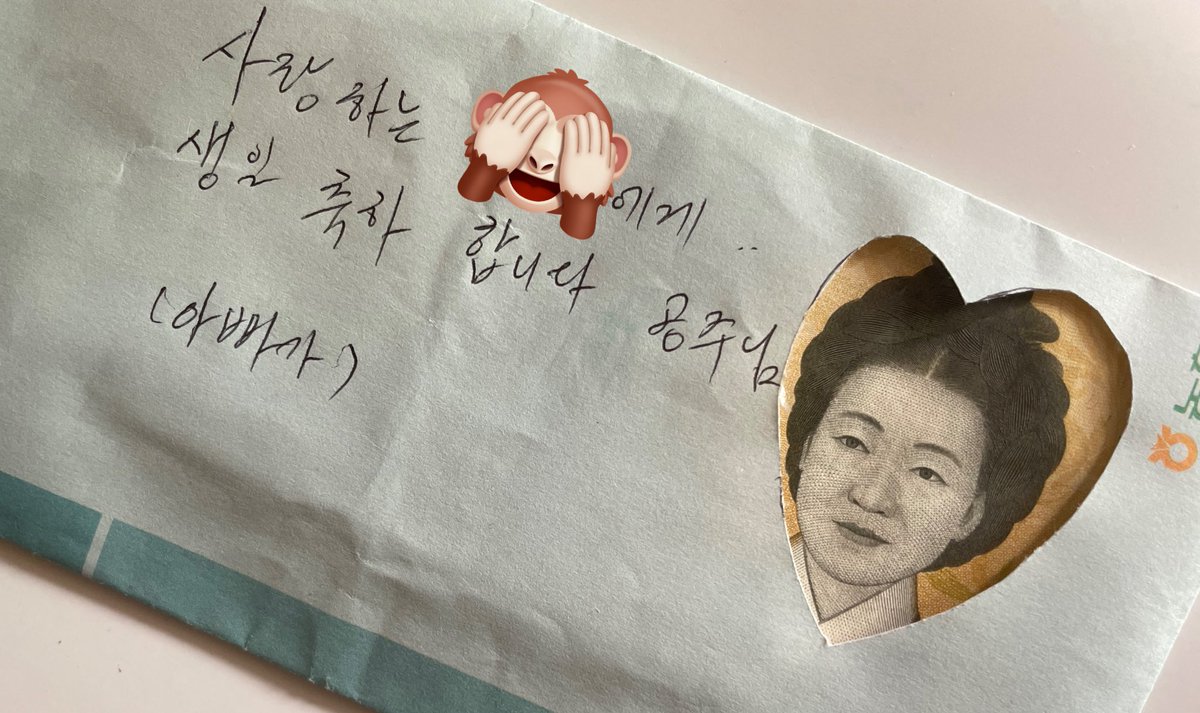 사랑하는 에게..
생일 축하 합니다 공주님
(아빠가)